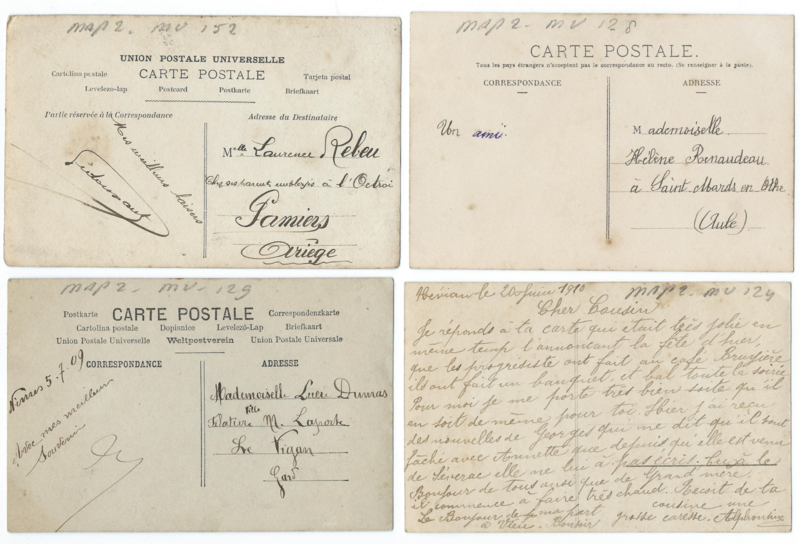 MAP 2 - MV 152
UNION POSTALE UNIVERSELLE
Cartolina postale CARTE POSTALE Tarjeta postal
Levelezo-lap Postcard Postkarte Briefkaart
Partie réservée à la Correspondance
Mes meilleurs baisers
Adresse du Destinataire
Mlle Laurence Rebeu
à l'Octroi
Pamiers
Ariège
MAP 2 - MV 128
CARTE POSTALE.
Tous les pays étrangers n'acceptent pas la correspondance au recto. (Se renseigner à la poste).
CORRESPONDANCE
Un ami.
ADRESSE
Mademoiselle
Hélène Renaudeau
à Saint-Mards en Othe
(Aube)
MAP 2 - MV - 129
Postkarte CARTE POSTALE Correspondenzkarte
Cartolina postale Dopisnice Levelező-Lap Briefkaart
Union Postale Universelle Weltpostverein Union Postale Universale
CORRESPONDANCE
Nîmes 5-7-09
Avec mes meilleurs
Souvenirs
ADRESSE
Mademoiselle Dumas
Filature M. Laporte
Le Vigan
Gard
MAP 2 - MV 124
le 20 Juin 1910
Cher Cousin
Je réponds à ta carte qui était très jolie en
même temp l'annoncant la fête d'hier,
que les progresiste ont fait au café Bruyière
ils ont fait un banquet, et bal toute la soirée
Pour moi je me porte très bien soite qu'il
en soit de même, pour toi. Hier j'ai reçu
des nouvelles de Georges qui me dit qu'il sont
fâché avec Annette que depuis qu'elle est venu
de Séverac elle ne leu à pas écrit.
Bonjour de tous ainsi que de Grand mère.
il commence à faire très chaud. Recoit de ta
Le Bonjour de ma part cousine une
à grosse caresse. Alphonsine